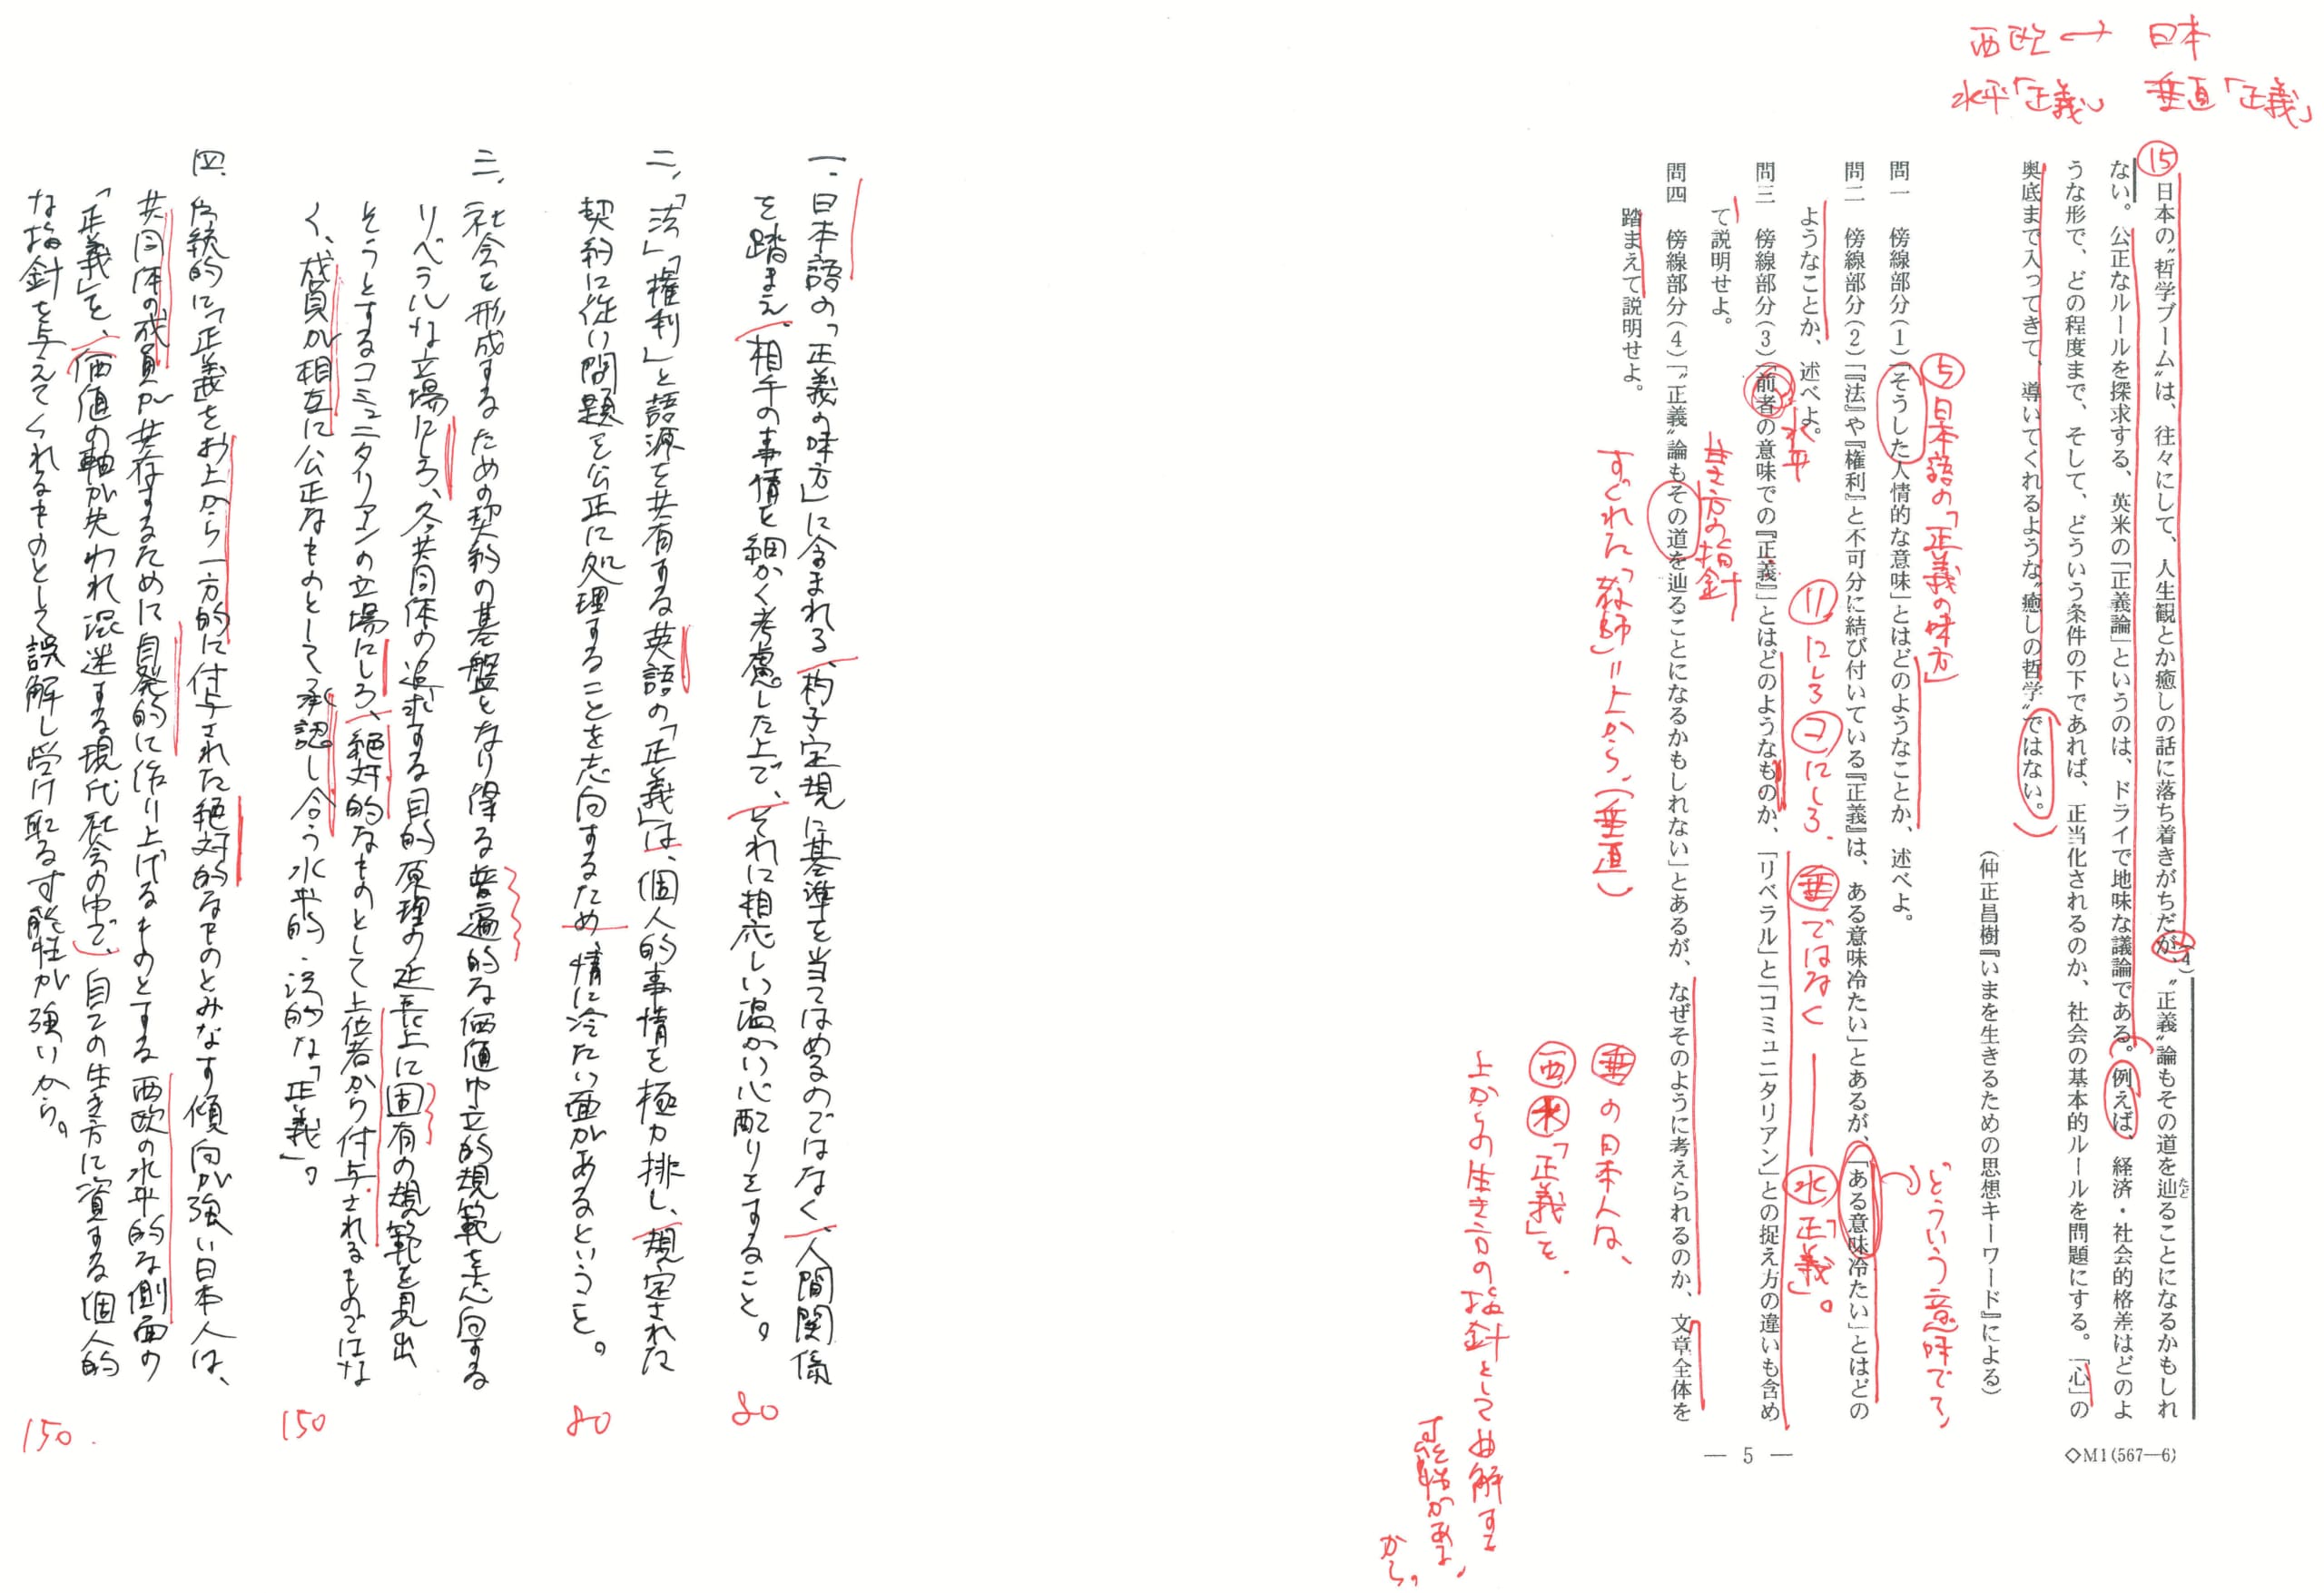 西欧 ↔ 日本
水平「正義」 垂直「正義」
⑮
日本の〝哲学ブーム〟は、往々にして、人生観とか癒しの話に落ち着きがちだが、(4)〝正義〟論もその道を辿ることになるかもしれ
たど
ない。公正なルールを探求する、英米の「正義論」というのは、ドライで地味な議論である。例えば、経済・社会的格差はどのよ
うな形で、どの程度まで、そして、どういう条件の下であれば、正当化されるのか、社会の基本的ルールを問題にする。「心」の
奥底まで入ってきて、導いてくれるような〝癒しの哲学〟ではない。
(仲正昌樹『いまを生きるための思想キーワード』による)
⑤日本語の「正義の味方」
どういう意味で、
問一 傍線部分(1)「そうした人情的な意味」とはどのようなことか、述べよ。
問二 傍線部分(2)「『法』や『権利』と不可分に結び付いている『正義』は、ある意味冷たい」とあるが、「ある意味冷たい」とはどの
ようなことか、述べよ。
水平
リにしろコにしろ、垂ではなく 水「正義」。
問三 傍線部分(3)「前者の意味での『正義』」とはどのようなものか、「リベラル」と「コミュニタリアン」との捉え方の違いも含め
て説明せよ。
生き方の指針
問四 傍線部分(4)「〝正義〟論もその道を辿ることになるかもしれない」とあるが、なぜそのように考えられるのか、文章全体を
踏まえて説明せよ。
すぐれた「教師」=上から(垂直)
垂の日本人は、
西水「正義」を、
上からの生き方の指針として誤解する
可能性がある、
から。
— 5 —
◇M1(567—6)
一、日本語の「正義の味方」に含まれる、杓子定規に基準を当てはめるのではなく、人間関係
を踏まえ、相手の事情を細かく考慮した上で、それに相応しい温かい心配りをすること。
80
二、「法」「権利」と語源を共有する英語の「正義」は、個人的事情を極力排し、規定された
契約に従い問題を公正に処理することを志向するため、情に冷たい面があるということ。
80
三、社会を形成するための契約の基盤となり得る普遍的な価値中立的規範を志向する
リベラルな立場にしろ、各共同体の追求する目的原理の延長上に固有の規範を見出
そうとするコミュニタリアンの立場にしろ、絶対的なものとして上位者から付与されるものではな
く、成員が相互に公正なものとして承認し合う水平的、法的な「正義」。
150
四、伝統的に「正義」をお上から一方的に付与された絶対的なものとみなす傾向が強い日本人は、
共同体の成員が共存するために自発的に作り上げるものとする西欧の水平的な側面の
「正義」を、価値の軸が失われ混迷する現代社会の中で、自己の生き方に資する個人的
な指針を与えてくれるものとして誤解し受け取る可能性が強いから。
150